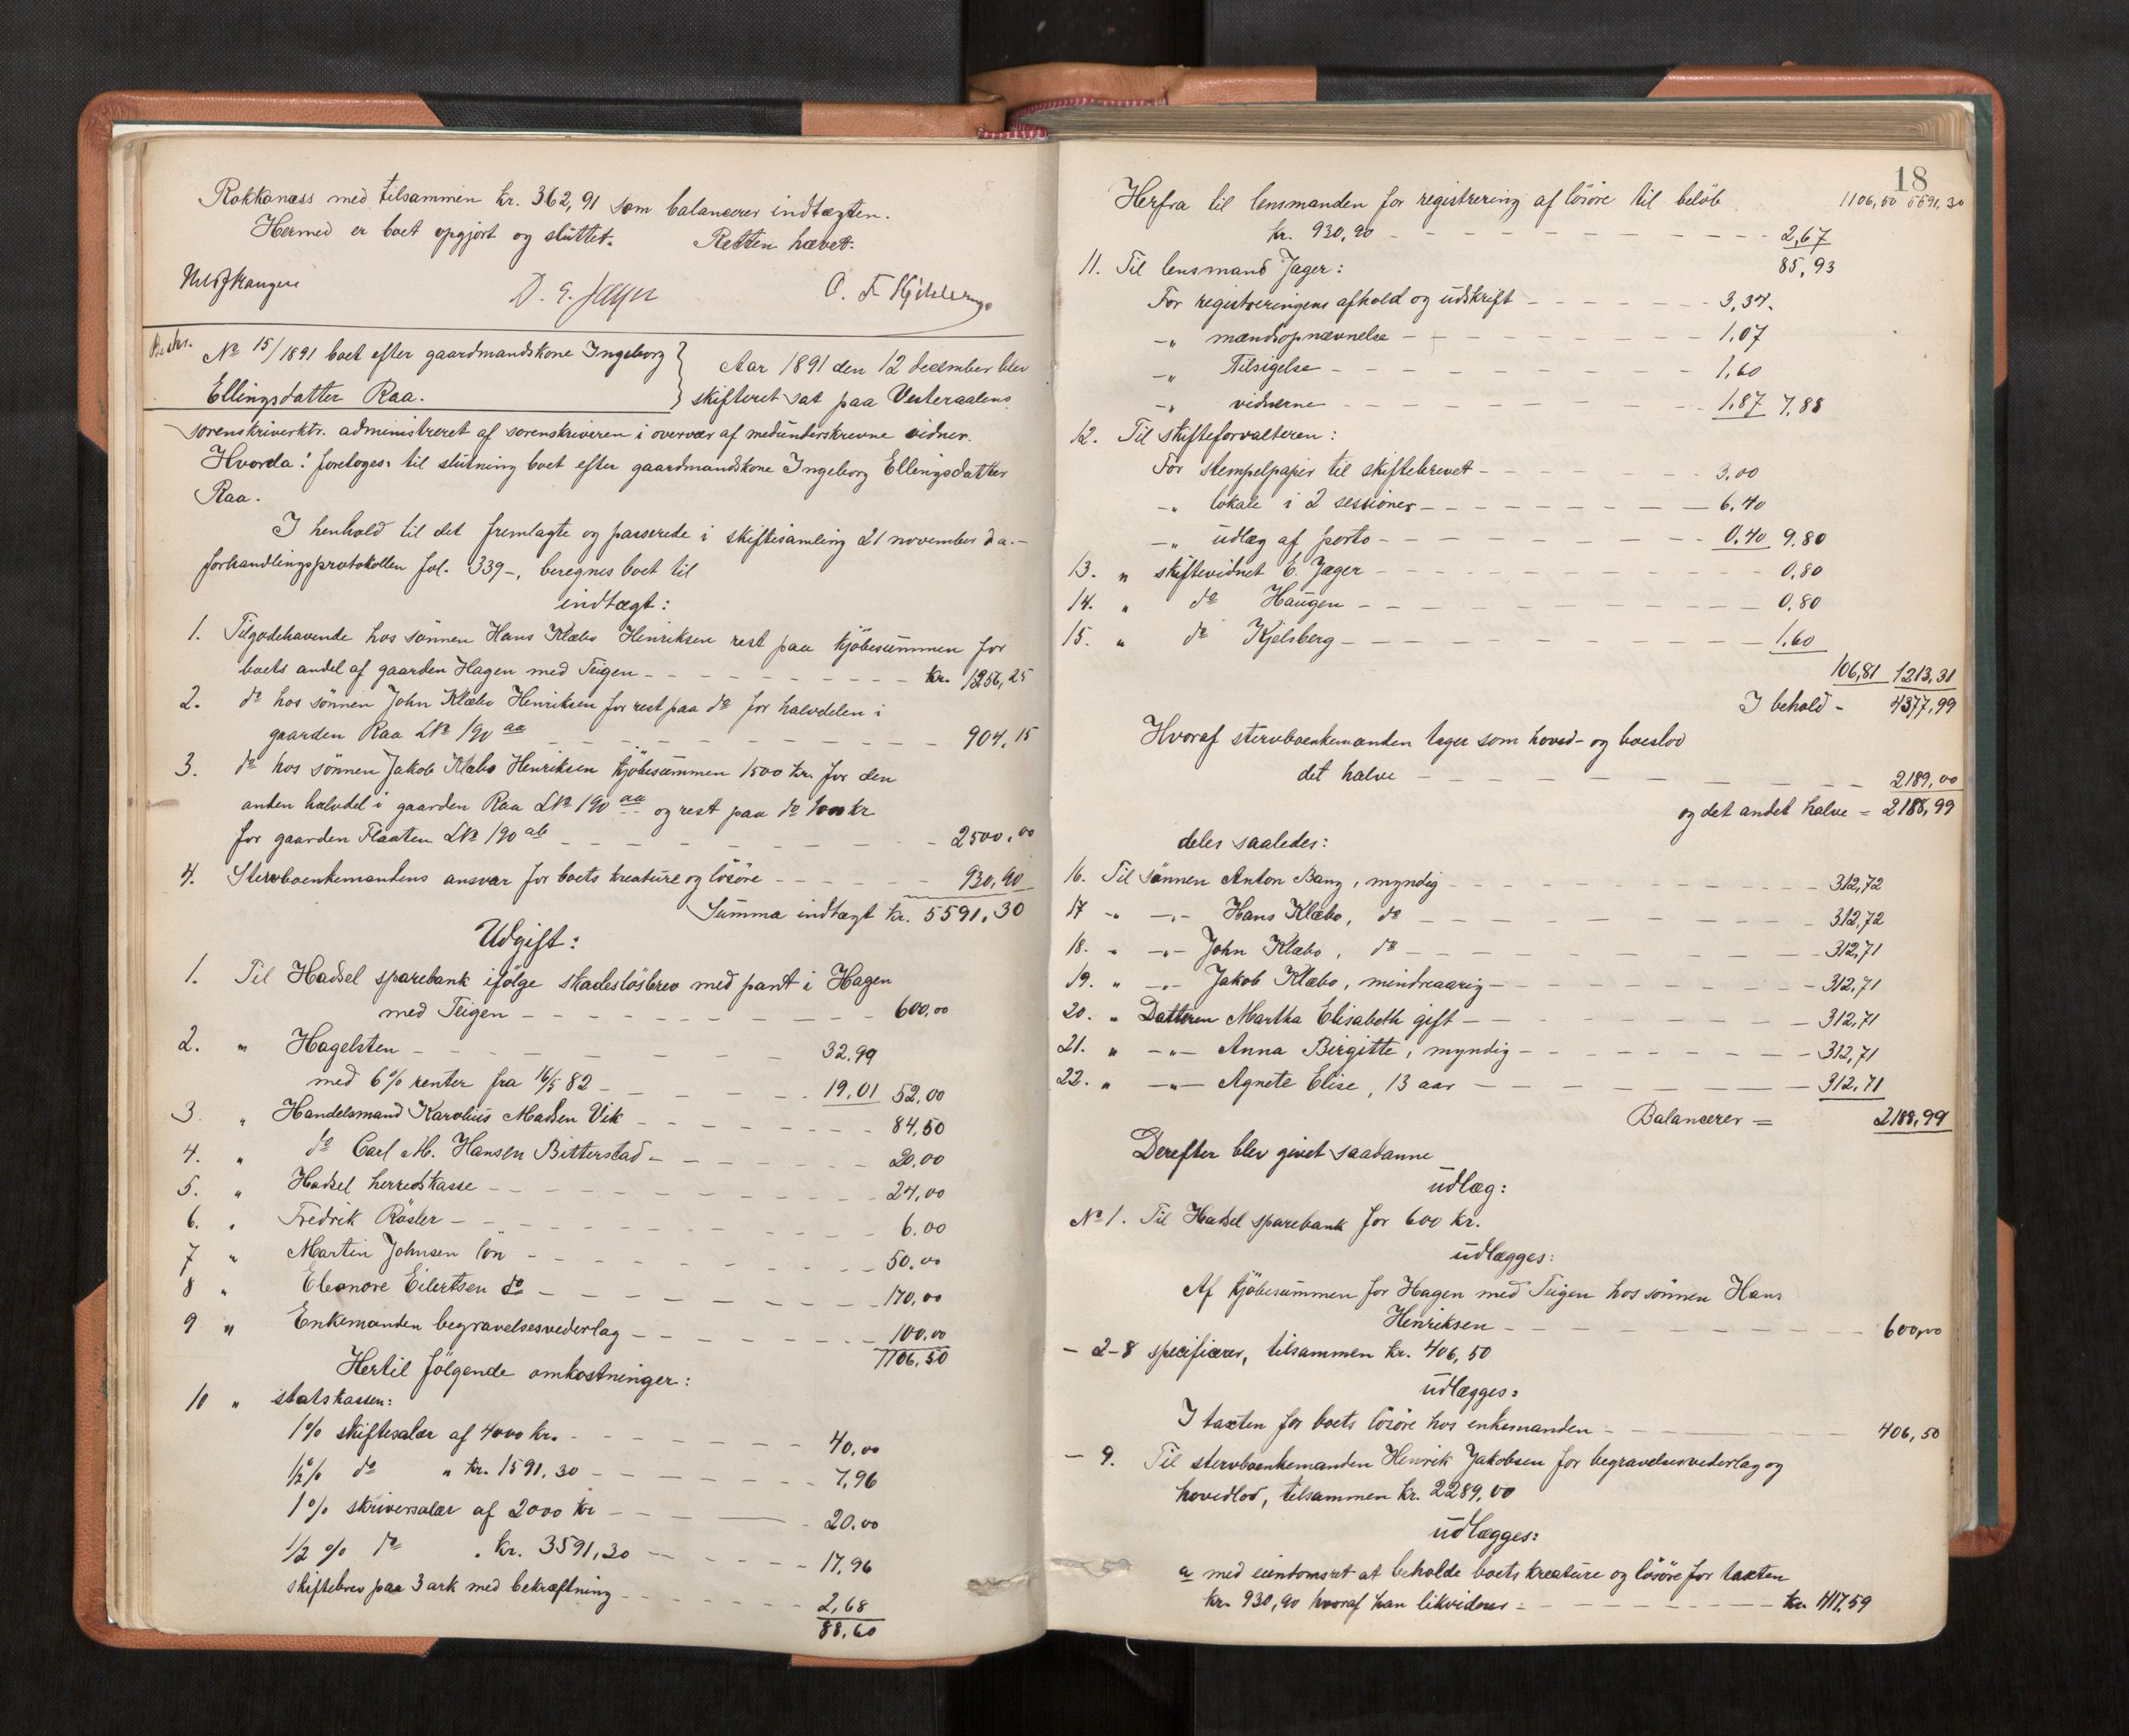 Rokkanæss med tilsammen kr. 362,91 som balancerer indtægten.
Hermed er boet opgjort og sluttet. Retten hævet.
D. E. Jæger O. F. Kjelsberg
No 15/1891 boet efter gaardmandskone Ingeborg
Ellingsdatter Raa.
Aar 1891 den 12 december blev
skifteret sat paa Vesteraalens
sorenskriverktr. administreret af sorenskriveren i overvær af medunderskrevne vidner.
Hvorda: foretoges til slutning boet efter gaardmandskone Ingeborg Ellingsdatter
Raa.
I henhold til det fremlagte og passerede i skiftesamling 21 november d a.-
forhandlingsprotokollen fol. 339-, beregnes boet til
indtægt:
1. Tilgodehavende hos sønnen Hans Klæbo Henriksen rest paa kjøbesummen for
boets andel af gaarden Hagen med Teigen - kr. 1256,25
2. do hos sønnen John Klæbo Henriksen for rest paa do for halvdelen i
gaarden Raa LNo 190 aa - 904,15
3. do hos sønnen Jakob Klæbo Henriksen kjøbesummen 1500 kr. for den
anden halvdel i gaarden Raa LNo 190 aa og rest paa do 1000 kr
for gaarden Flaaten LNo 190 ab - 2500,00
4. Stervboenkemandens ansvar for boets kreature og løsøre - 930,90
Summa indtægt kr. 5591,30
Udgift:
1. Til Hadsel sparebank ifølge skadesløsbrev med pant i Hagen
med Teigen - 600,00
2. " Hagelsten - 32,99
med 6% renter fra 16/5 82 - 19,01 52,00
3. " Handelsmand Karolius Madsen Vik - 84,50
4. " do Carl M. Hansen Bitterstad - 20,00
5. " Hadsel herredskasse - 24,00
6. " Fredrik Røsler - 6.00
7 " Martin Johnsen løn - 50,00
8 " Eleonore Eilertsen do - 170,00
9 " Enkemanden begravelsesvederlag - 100,00
1106,50
Hertil følgende omkostninger:
10 " statskassen:
1% skiftesalær af 4000 kr. - 40,00
1/2% do " kr. 1591,30 - 7,96
1% skriversalær af 2000 kr - 20.00
1/2 % do " kr. 3591,30 - 17,96
skiftebrev paa 3 ark med bekræftning - 2,68
88,60
18
Herfra til lensmanden for registrering af løsøre til beløb 1106,50 5591,30
kr. 930,90 - 2,67
11. Til lensmand Jæger: 85,93
For registreringens afhold og udskrift - 3,34.
-" mandsopnævnelse - 1,07
-" Tilsigelse - 1,60
-" vidnerne - 1,87 7,88
12. Til skifteforvalteren:
For stempelpapir til skiftebrevet - 3,00
-" lokale i 2 sessioner - 6.40
-" udlæg af porto - 0,40 9,80
13. " skiftevidnet E. Jæger - 0,80
14. " do Haugen - 0,80
15. " do Kjelsberg - 1,60
106,81 1213,31
I behold - 4377,99
Hvoraf stervboenkemanden tager som hoved- og boeslod
det halve - 2189,00
og det andet halve = 2188,99
deles saaledes:
16. Til Sønnen Anton Bang, myndig - 312,72
17 -" -"- Hans Klæbo, do - 312,72
18. " -"- John Klæbo, do - 312,71
19. " -"- Jakob Klæbo, mindreaarig - 312,71
20. " Datteren Martha Elisabeth gift - 312,71
21. " -"- Anna Birgitte, myndig - 312,71
22. " -"- Agnete Elise, 13 aar - 312,71
Balancerer = 2188,99
Derefter blev givet saadanne
udlæg:
No 1. Til Hadsel sparebank for 600 kr.
udlægges:
Af kjøbesummen for Hagen med Teigen hos sønnen Hans
Henriksen - 600,00
- 2-8 specificerer, tilsammen kr. 406,50
udlægges:
I taxten for boets løsøre hos enkemanden - 406,50
- 9. Til stervboenkemanden Henrik Jakobsen for begravelsesvederlag og
hovedlod, tilsammen kr. 2289,00
udlægges:
a med eiendomsret at beholde boets kreature og løsøre for taxten
kr. 930,90 hvoraf han likviderer - kr. 417,59